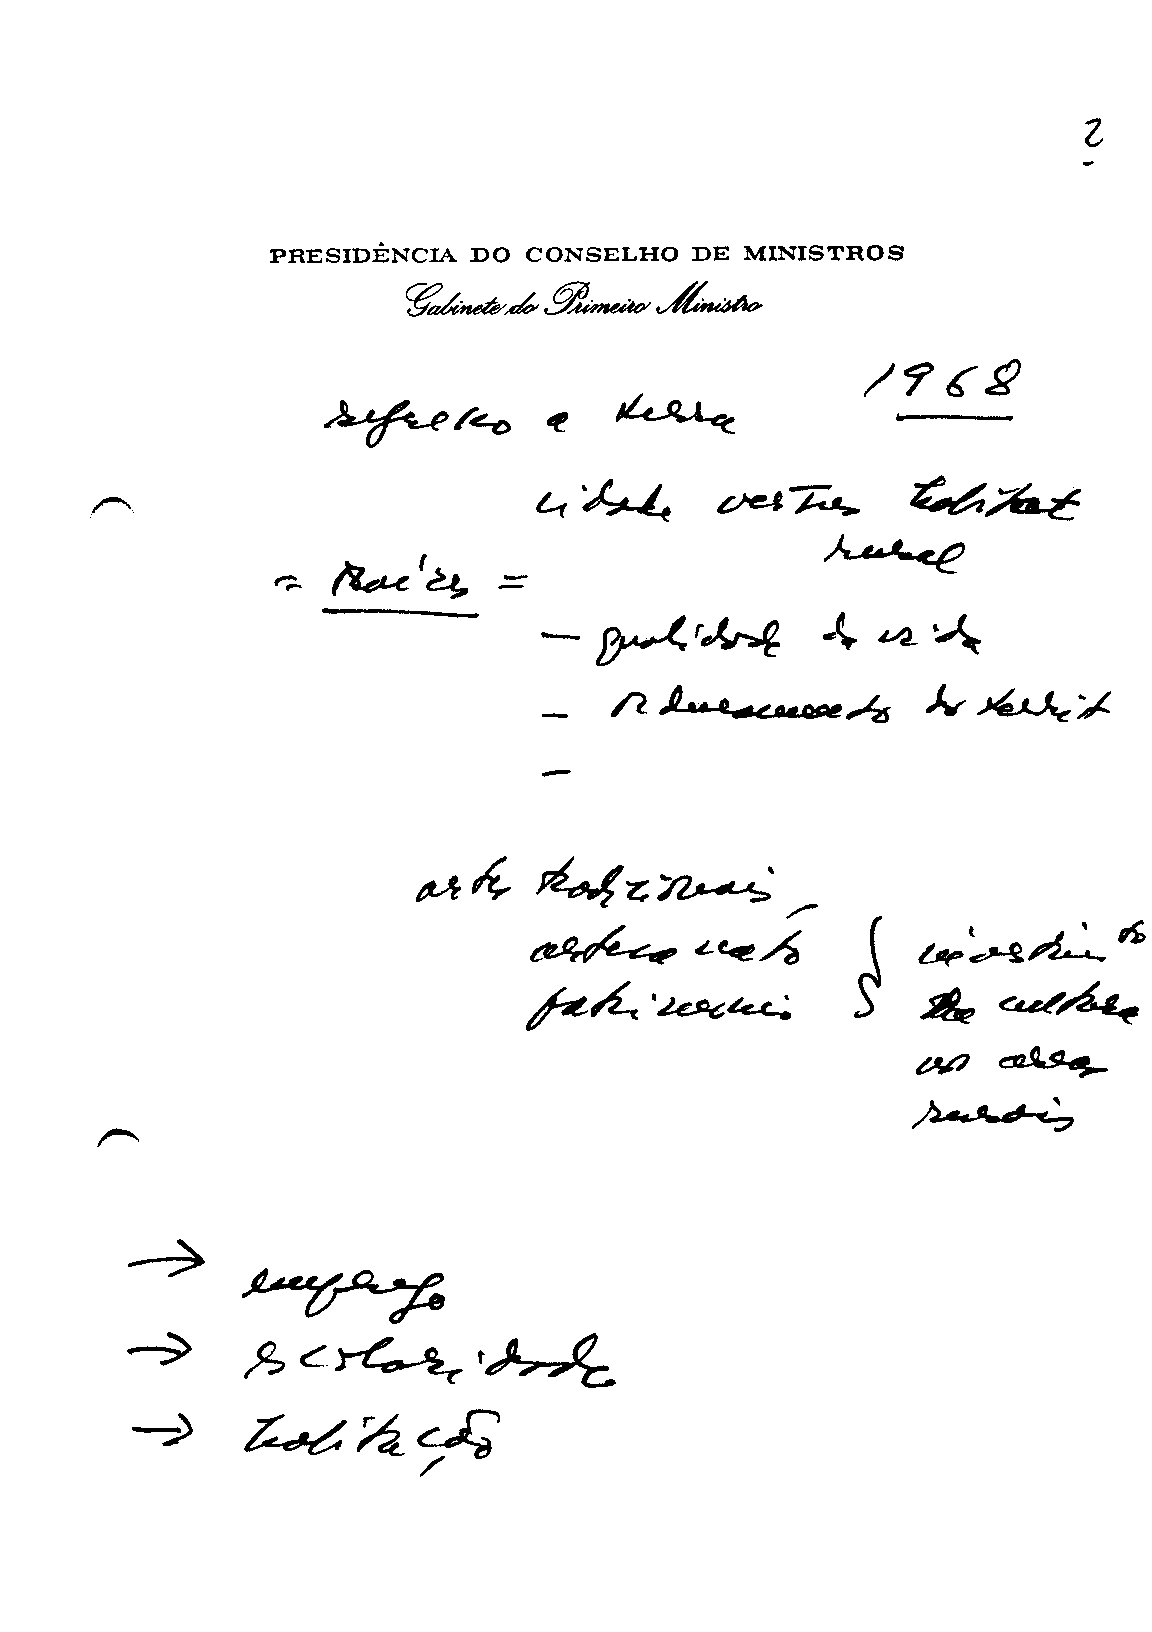 2
PRESIDÊNCIA DO CONSELHO DE MINISTROS
Gabinete do Primeiro Ministro
1968
regresso a terra
cidade versus habitat
rural
= Raízes =
— qualidade da vida
— Ordenamento do territ
—
artes tradicionais
artesanato
patrimonio
da cultura
nas areas
rurais
→ emprego
→ escolaridade
→ habitação